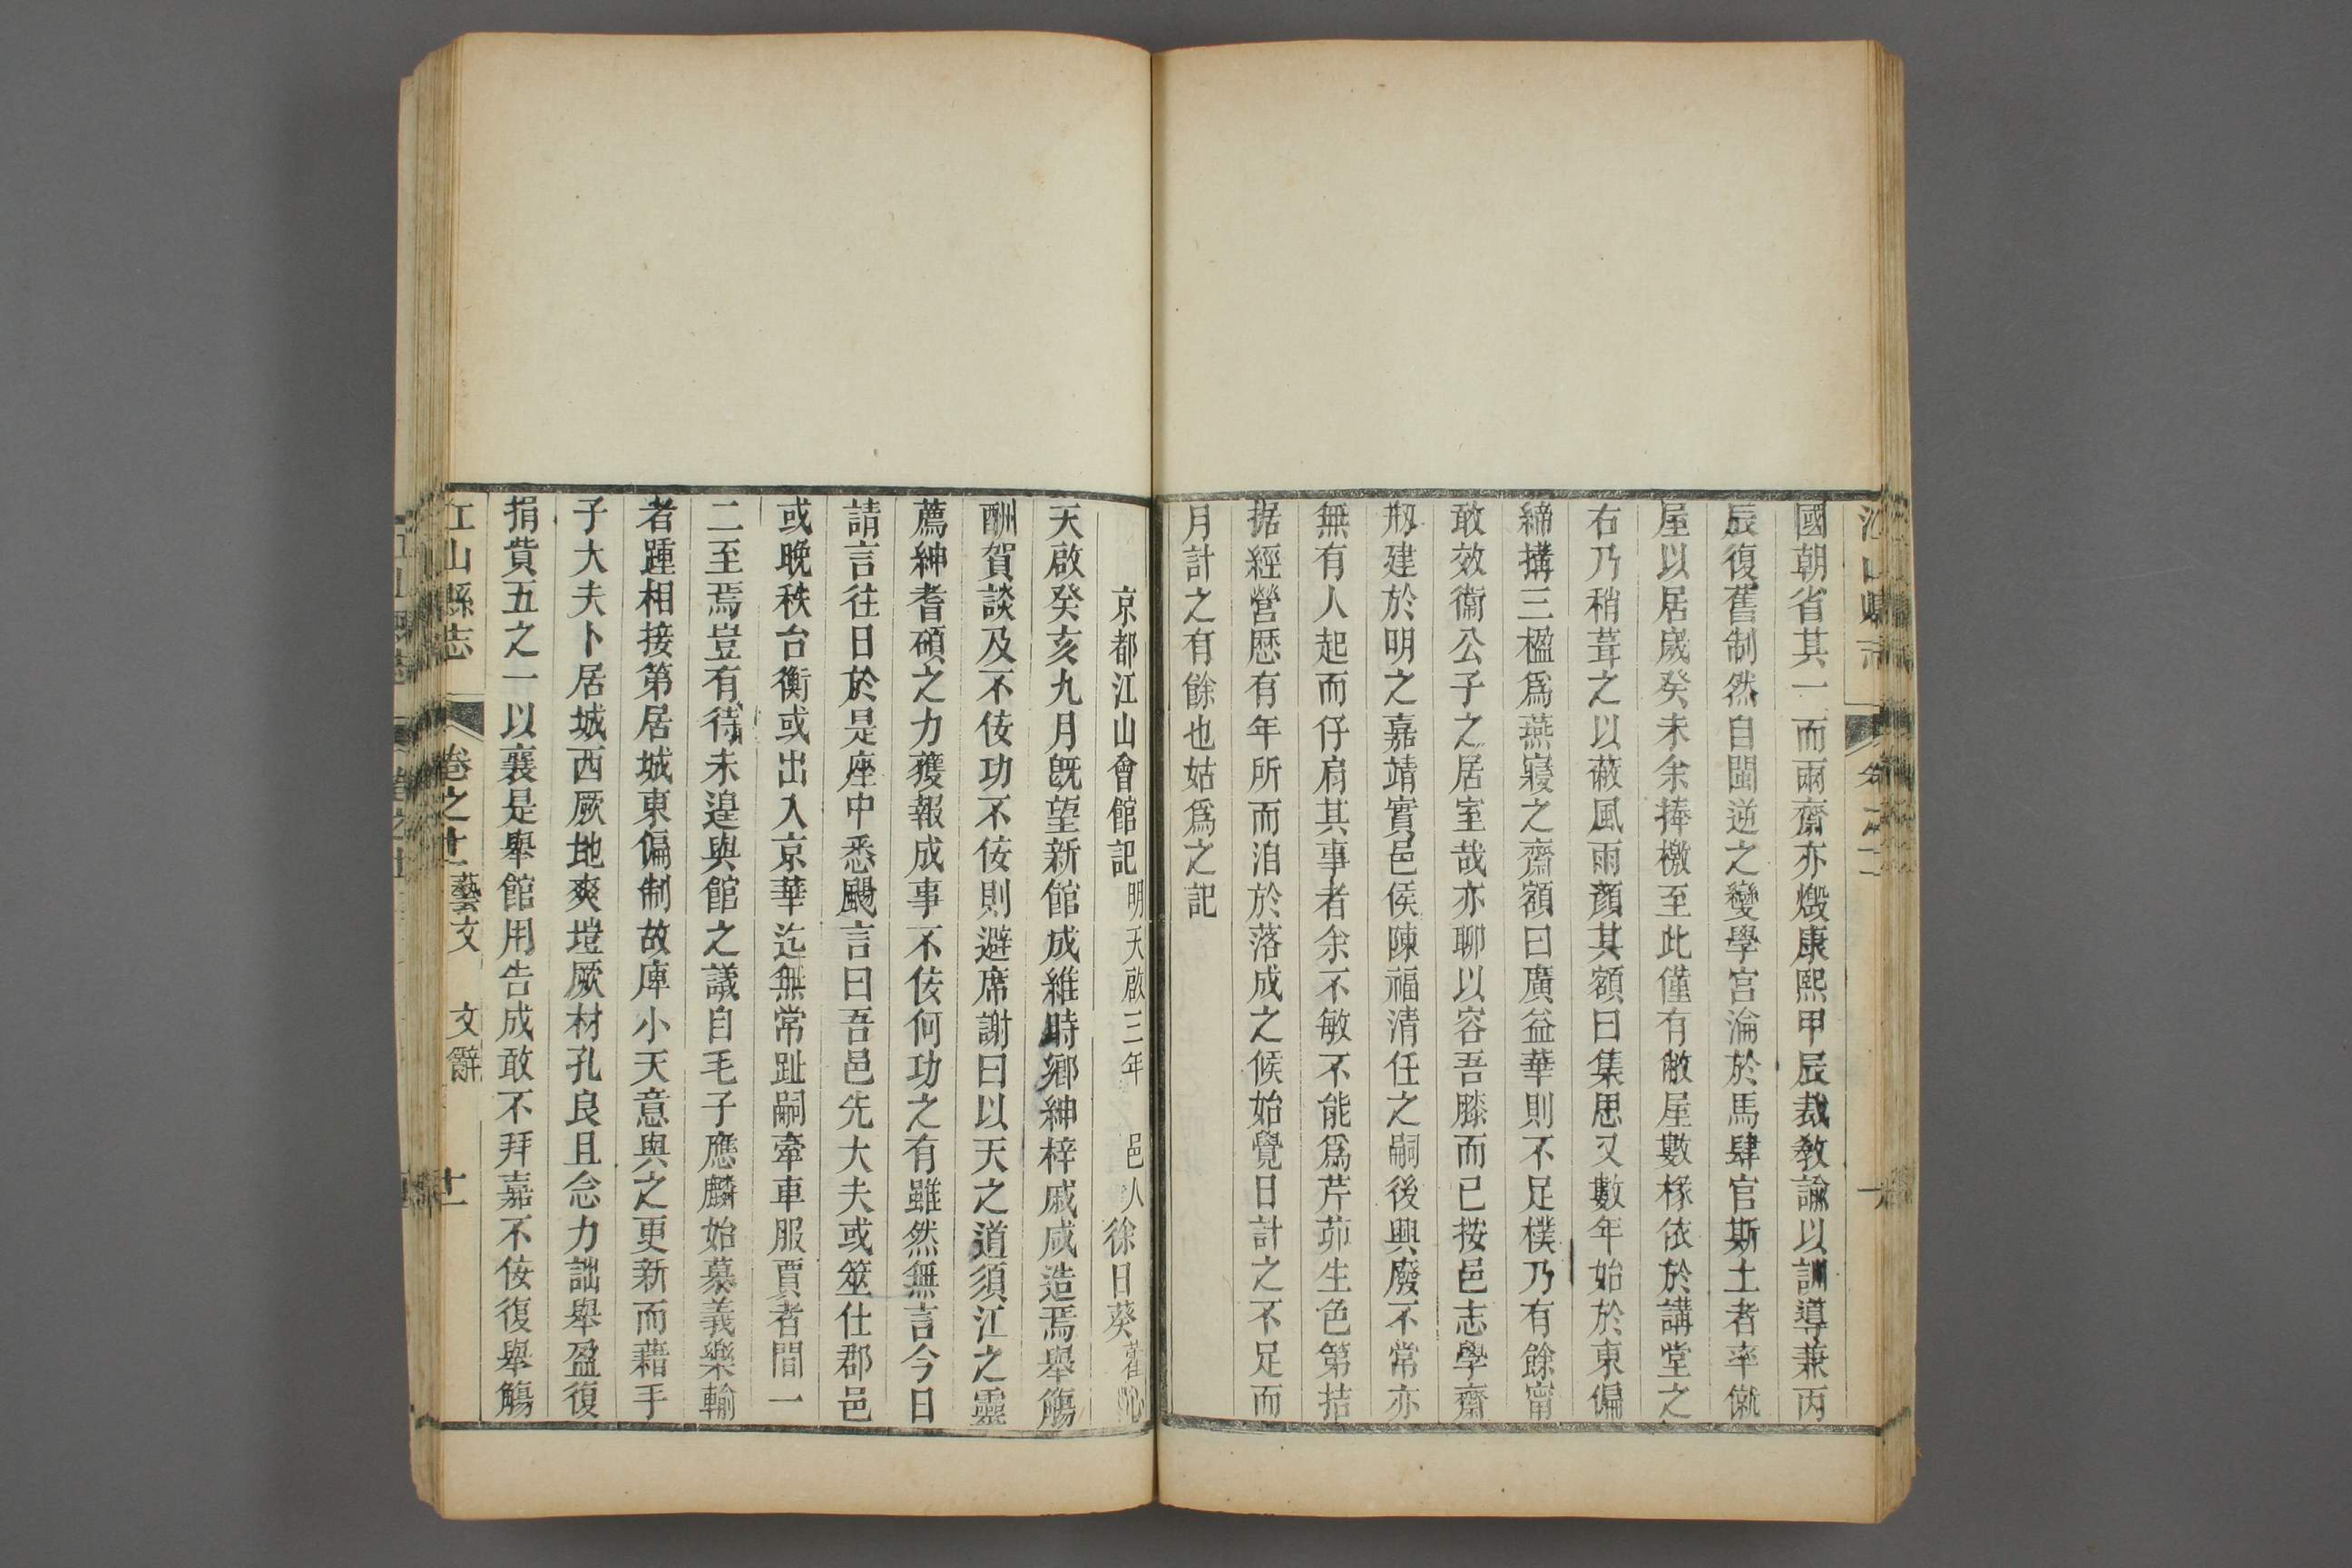 國朝省其一而兩齋亦燬康熙甲辰裁教諭以訓導兼丙
辰復舊制然自閩逆之變學宮淪於馬肆官斯土者率僦
屋以居歲癸未余捧檄至此僅有敝屋數椽依於講堂之
右乃稍葺之以蔽風雨顏其額曰集思又數年始於東偏
締搆三楹爲燕寢之齋額曰廣益華則不足樸乃有餘甯
敢效衞公子之居室哉亦聊以容吾膝而已按邑志學齋
剏建於明之嘉靖實邑侯陳福清任之嗣後興廢不常亦
無有人起而仔肩其事者余不敏不能爲芹茆生色第拮
据經營歷有年所而洎於落成之候始覺日計之不足而
月計之有餘也姑爲之記
京都江山會館記 明天啟三年 邑人 徐日葵
天啟癸亥九月旣望新館成維時鄉紳梓戚咸造焉舉觴
酬賀談及不佞功不佞則避席謝曰以天之道須江之靈
薦紳耆碩之力獲報成事不佞何功之有雖然無言今日
請言往日於是座中悉颺言曰吾邑先大夫或筮仕郡邑
或晚秩台衡或出入京華迄無常趾嗣牽車服賈者間一
二至焉豈有待未遑與館之議自毛子應麟始慕義樂輸
者踵相接第居城東偏制故庳小天意與之更新而藉手
子大夫卜居城西厥地爽塏厥材孔良且念力詘舉盈復
捐貲五之一以襄是舉館用告成敢不拜嘉不佞復舉觴
江山縣志 卷之十一 藝文 文辭 十一